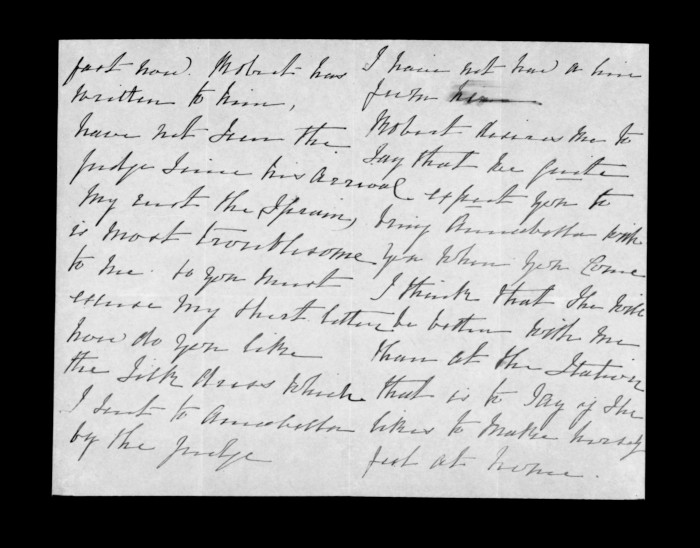 past now. Robert has
written to him,
have not seen the
Judge since his arrival.
My wrist the Sprain,
is most troublesome
to me. so you must
excuse my short letter
how do you like
the Silk dress which
I sent to Annabella
by the Judge
I have not had a line
from her
Robert desires me to
Say that he quite
expect you to
bring Annabella with
you when you Come
I think that She will
be better with me
than at the Station
that is to Say if She
likes to Make herself
feel at home.